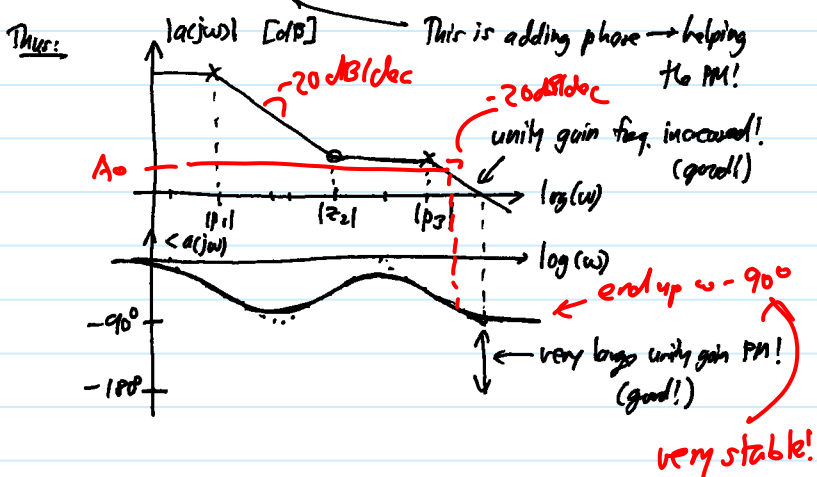 Thus:
|a(jω)| [dB]
This is adding phase → helping
the PM!
-20 dB/dec
-20dB/dec
unity gain freq. increased!
(good!)
A₀
log(ω)
|p₁|
|z₂|
|p₃|
<a(jω)
log(ω)
end up @ -90°
-90°
very large unity gain PM!
(good!)
-180°
very stable!